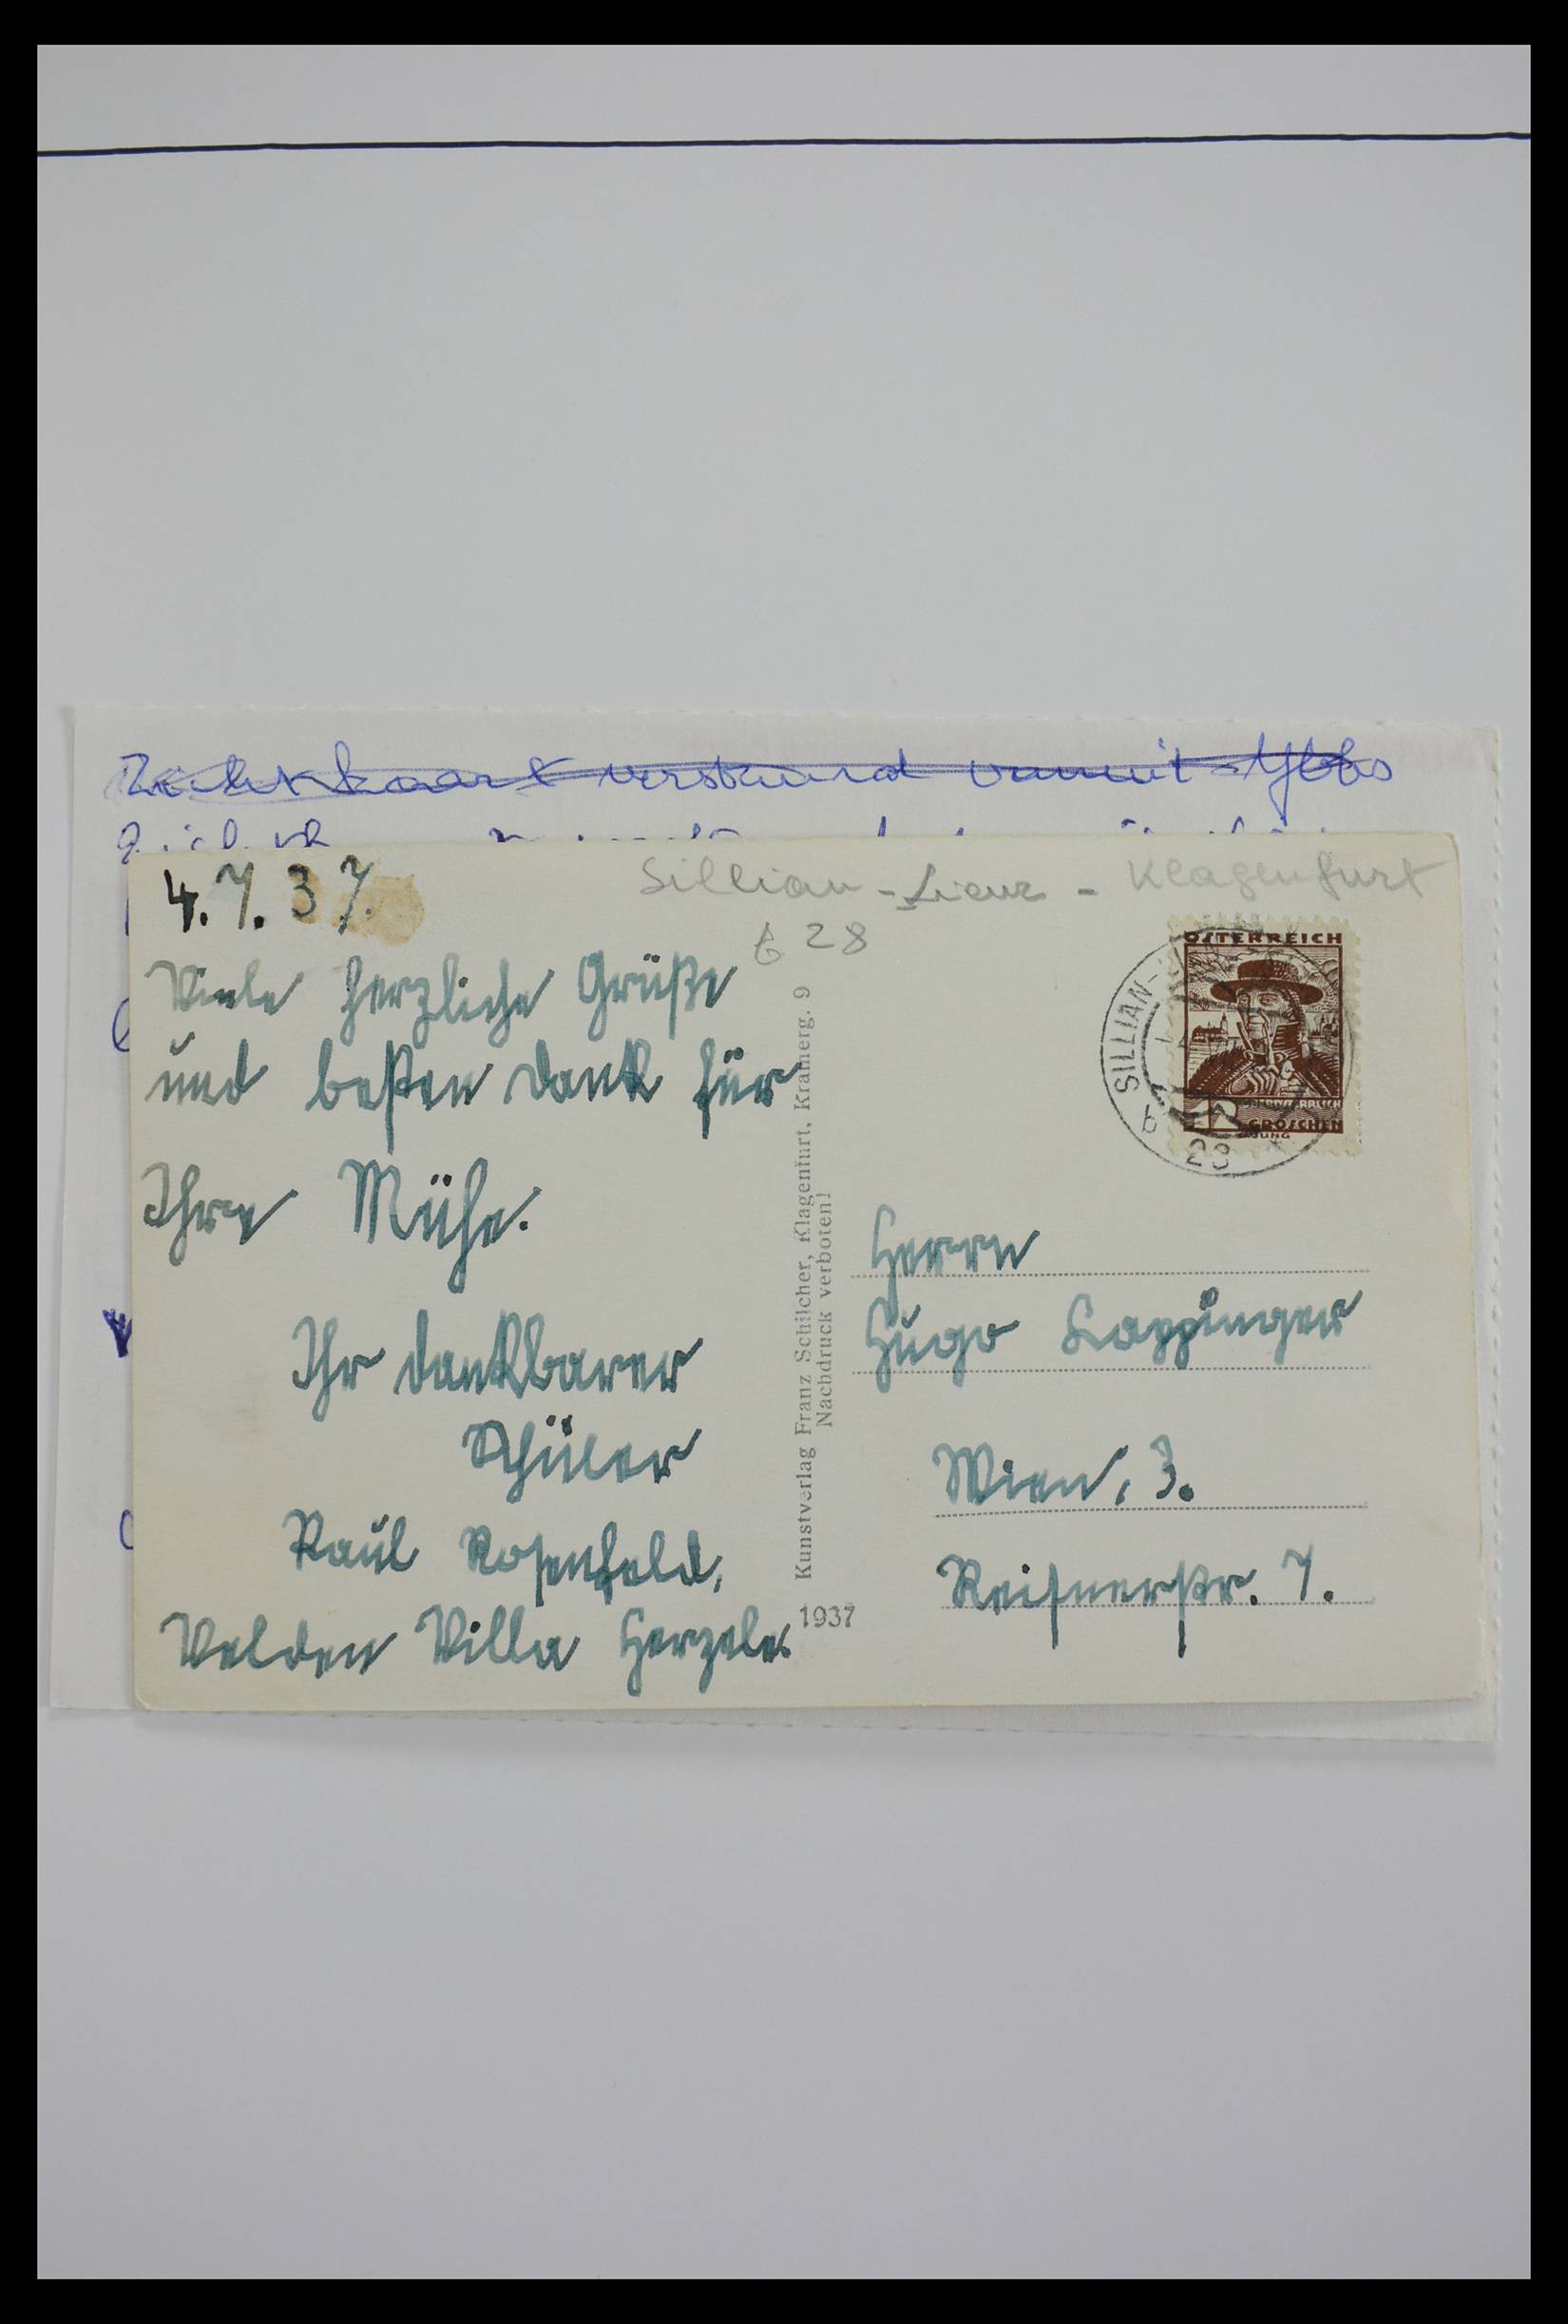 Zichtkaart verstuurd vanuit Ybbs
4.7.37.
Sillian - Lienz - Klagenfurt
28
Viele herzliche Grüße
und besten Dank für
Ihre Mühe.
Ihr dankbarer
Schüler
Paul Rosenfeld,
Velden Villa Herzele.
Kunstverlag Franz Schilcher, Klagenfurt, Kramerg. 9
Nachdruck verboten!
1937
ÖSTERREICH
GROSCHEN
SILLIAN-
b
28
Herrn
Hugo Kappinger
Wien, 3.
Reisnerstr. 7.